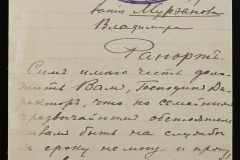 вата Мурзанова
Владимира
Рапортъ.
Симъ имѣю честь доло-
жить Вамъ, Господинъ Ди-
ректоръ, что по семейнымъ
чрезвычайнымъ обстоятель-
ствамъ быть на службѣ
къ сроку не могу и прошу